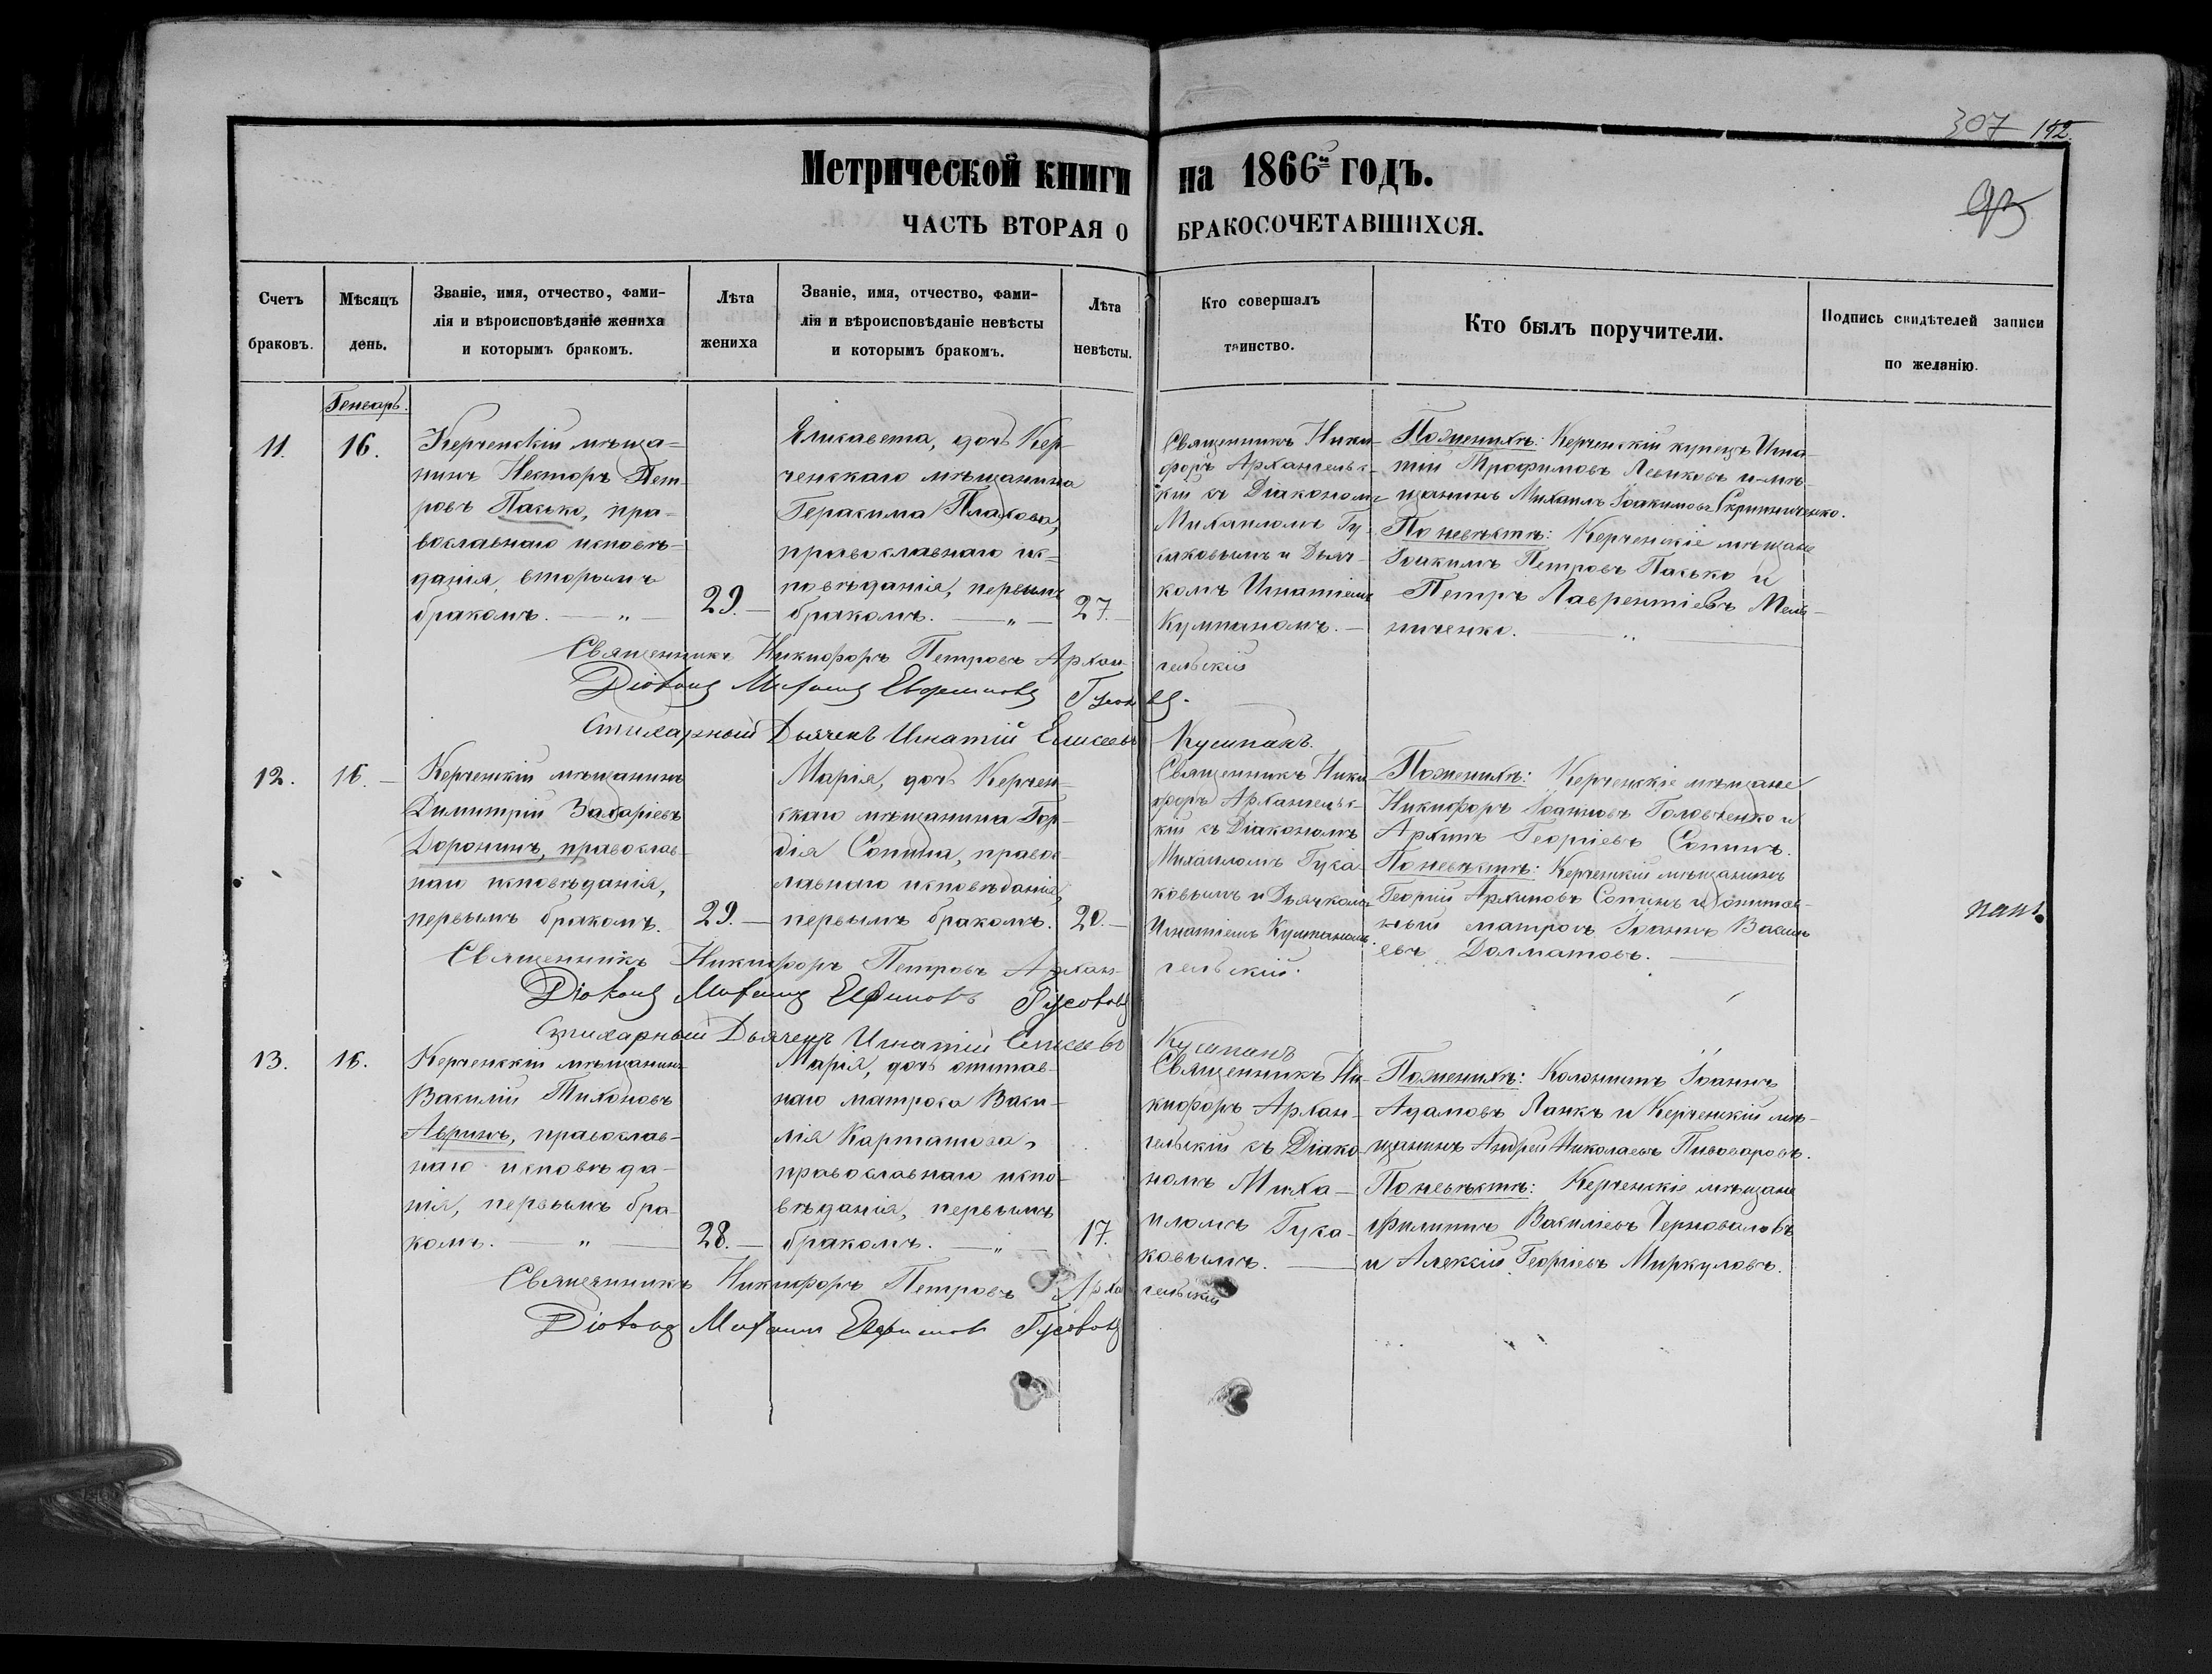 307 142.
93
Метрической книги на 1866й годъ.
ЧАСТЬ ВТОРАЯ О БРАКОСОЧЕТАВШИХСЯ.
Счетъ браковъ.
Мѣсяцъ день.
Званіе, имя, отчество, фами-
лія и вѣроисповѣданіе жениха
и которымъ бракомъ.
Лѣта жениха
Званіе, имя, отчество, фами-
лія и вѣроисповѣданіе невѣсты
и которымъ бракомъ.
Лѣта невѣсты.
Кто совершалъ
таинство.
Кто былъ поручители.
Подпись свидѣтелей записи
по желанію.
Генварь.
11.
16.
Керченскій мѣща=
нинъ Несторъ Пет-
ровъ Пасько, пра-
вославнаго исповѣ-
данія, вторымъ
бракомъ. — „ —
29. —
Елисавета, дочь Кер-
ченскаго мѣщанина
Герасима Плахова,
православнаго ис-
повѣданія, первымъ
бракомъ. — „ —
27. —
Священникъ Ники-
форъ Архангельс-
кій съ Діакономъ
Михаиломъ Гу-
саковымъ и Дьяч-
комъ Игнатіемъ
Кумпаномъ. —
По женихѣ: Керченскій купецъ Игна-
тій Трофимовъ Левиковъ и мѣ-
щанинъ Михаилъ Іоакимовъ Скрипниченко.
По невѣстѣ: Керченскіе мѣщане
Іоакимъ Петровъ Пасько и
Петръ Лаврентіевъ Мель-
ниченко. — „ —
Священникъ Никифоръ Петровъ Архан-
гельскій
Діаконъ Михаилъ Евфимовъ Гусаковъ.
Стихарный Дьячекъ Игнатій Елисеевъ Кумпанъ.
12.
16. —
Керченскій мѣщанинъ
Димитрій Захаріевъ
Доронинъ, православ-
наго исповѣданія,
первымъ бракомъ.
29. —
Марія, дочь Керчен-
скаго мѣщанина Гор-
дія Сопина, правос-
лавнаго исповѣданія,
первымъ бракомъ.
20. —
Священникъ Ники-
форъ Архангельс-
кій съ Діакономъ
Михаиломъ Гуса-
ковымъ и Дьячкомъ
Игнатіемъ Кумпаномъ.
По женихѣ: Керченскіе мѣщане
Никифоръ Іоанновъ Головченко и
Архипъ Георгіевъ Сопинъ.
По невѣстѣ: Керченскій мѣщанинъ
Георгій Архиповъ Сопинъ и отстав-
ный матросъ Іоаннъ Васильевъ
Долматовъ. —
Священникъ Никифоръ Петровъ Архан-
гельскій.
Діаконъ Михаилъ Евфимовъ Гусаковъ
Стихарный Дьячекъ Игнатій Елисеевъ Кумпанъ
13.
16.
Керченскій мѣщанинъ
Василій Тихоновъ
Авринъ, православ-
наго исповѣда-
нія, первымъ бра-
комъ. — „ —
28. —
Марія, дочь отстав-
наго матроса Васи-
лія Карташова,
православнаго испо-
вѣданія, первымъ
бракомъ. — „ —
17.
Священникъ Ни-
кифоръ Архан-
гельскій съ Діако-
номъ Миха-
иломъ Гуса-
ковымъ. —
По женихѣ: Колонистъ Іоаннъ
Адамовъ Ланкъ и Керченскій мѣ-
щанинъ Андрей Николаевъ Пивоваровъ.
По невѣстѣ: Керченскіе мѣщане
Филиппъ Василіевъ Черноваловъ
и Алексій Георгіевъ Миркуловъ.
Священникъ Никифоръ Петровъ Архангельскій
Діаконъ Михаилъ Евфимовъ Гусаковъ